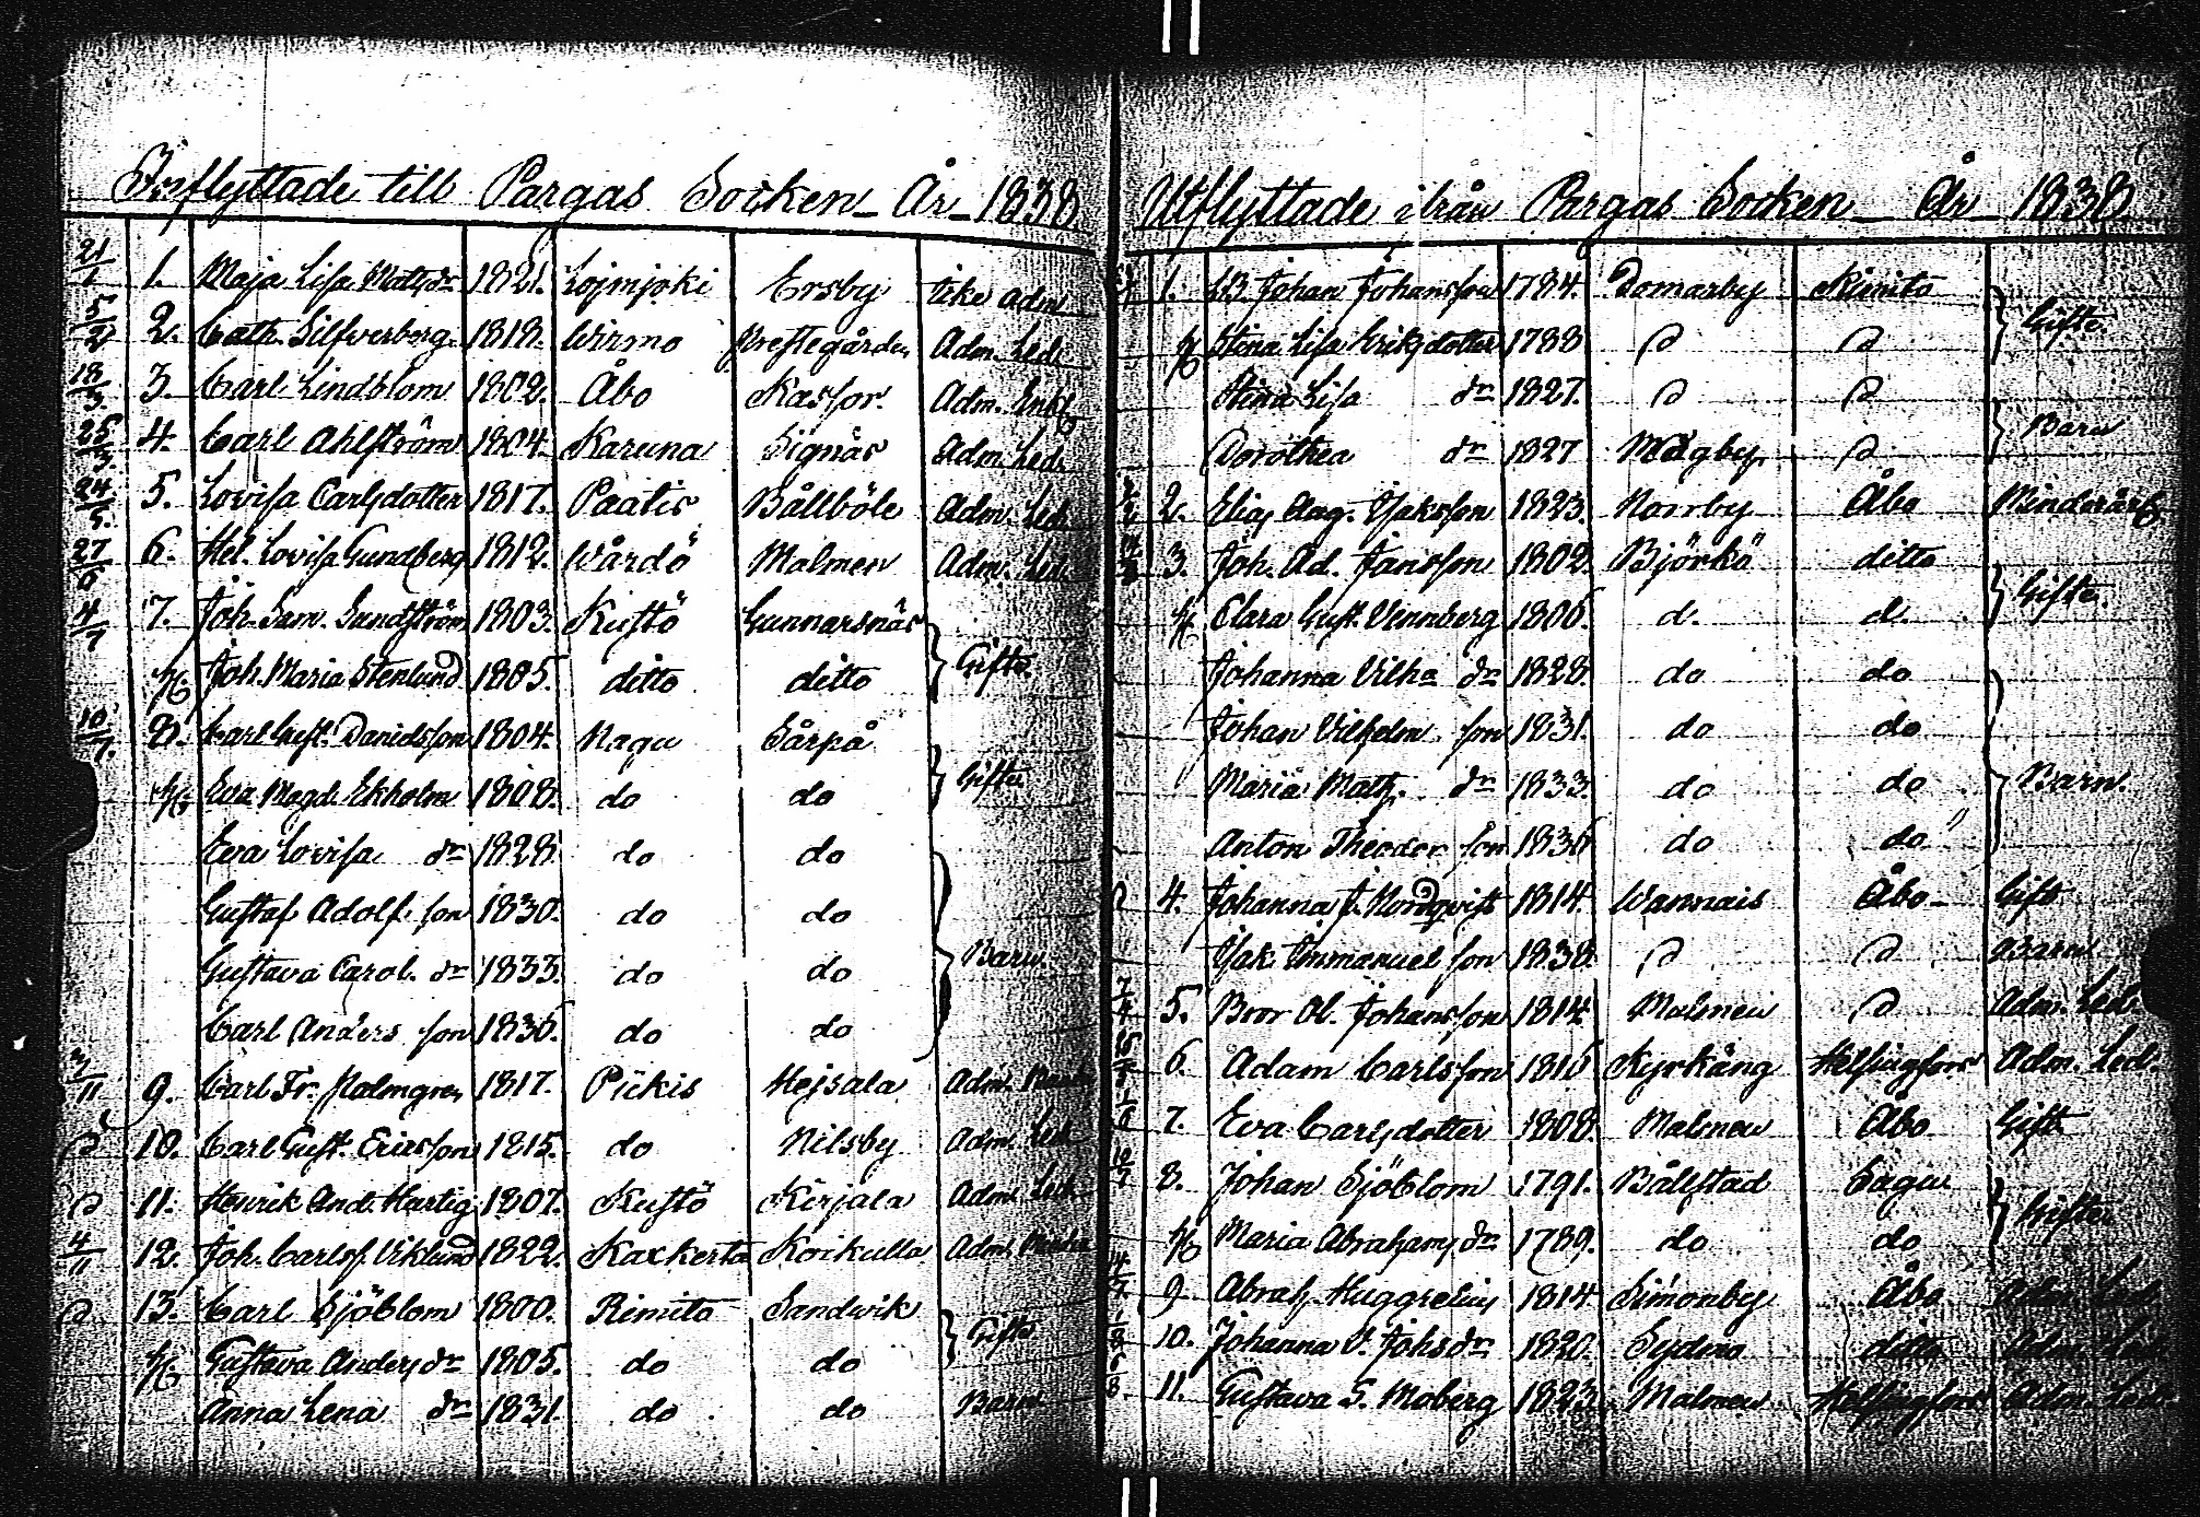 Inflyttade till Pargas Socken - År - 1838
21/1 1. Maja Lisa Matsdr 1821. Lojmjoki Ersby icke adm
5/2 2. Cath. Silfverberg 1818. Wirmo Prestegården Adm. Led.
18/3. 3. Carl Lindblom 1802. Åbo Kassor. Adm. Enkl
25/3. 4. Carl Ahlström 1804. Karuna Signäs Adm. Led.
24/5. 5. Lovisa Carlsdotter 1817. Paatis Bållböle Adm. Led.
27/6 6. Hel. Lovisa Gundberg 1812. Wårdö Malmen Adm. Led.
4/7 7. Joh. Sam. Sundström 1803. Kustö Gunnarsnäs
H. Joh. Maria Stenlund 1805. ditto ditto Gifte.
10/7. 8. Carl Gust. Danielsson 1804. Nagu Sårpå
H. Eva Magd. Ekholm 1808. do do Gifte
Eva Lovisa dr 1828. do do
Gustaf Adolf. son 1830. do do
Gustava Carol. dr 1833. do do Barn
Carl Anders son 1836. do do
9. Carl Fr. Malmgren 1817. Piikis Hejsala Adm.
10. Carl Gust. Ericsson 1815. do Nilsby Adm. Led.
11. Henrik And. Hartig 1807. Kustö Kirjala Adm. Led.
4/11 12. Joh. Carlss. Viklund 1822. Kackerta Koikulla Adm.
13. Carl Sjöblom 1800. Rimito Sandvik
H. Gustava Andersdr 1805. do do Gifte
Anna Lena dr 1831. do do Barn
Utflyttade ifrån Pargas Socken - År - 1838
1. Johan Johansson 1784. Domarby Kimito
H. Stina Lisa Eriksdotter 1788 Gifte.
Stina Lisa dr 1827.
Dorothea dr 1827 Mågby Barn
2. Elias Aug. Isaksson 1823. Norrby Åbo Minderårig
3. Joh. Ad. Jansson 1802. Björkö ditto
H. Clara Gust. Vennberg 1806. d. d. Gifte.
Johanna Vilha dr 1828. do do
Johan Vilhelm son 1831. do do
Maria Math. dr 1833. do do Barn.
Anton Theodor son 1836 do do
4. Johanna J. Nordqvist 1814. Wannais Åbo - Gift
Isak Immanuel son 1838. Barn
7/4 5. Bror Ol. Johansson 1814. Malmen Adm. Led.
6. Adam Carlsson 1816 Kyrkäng Helsingfors Adm. Led.
7. Eva Carlsdotter 1808. Malmen Åbo Gift
8. Johan Sjöblom 1791. Bålstad Sagu
H. Maria Abrahamsdr 1789. do do Gifte
9 Abrah. Huggrelius 1814 Simonby Åbo Adm. Led.
10. Johanna V. Johsdr 1820. Sydmo ditto Adm. Led.
6/8 11. Gustava S. Moberg 1823. Malmen Helsingfors Adm. Led.